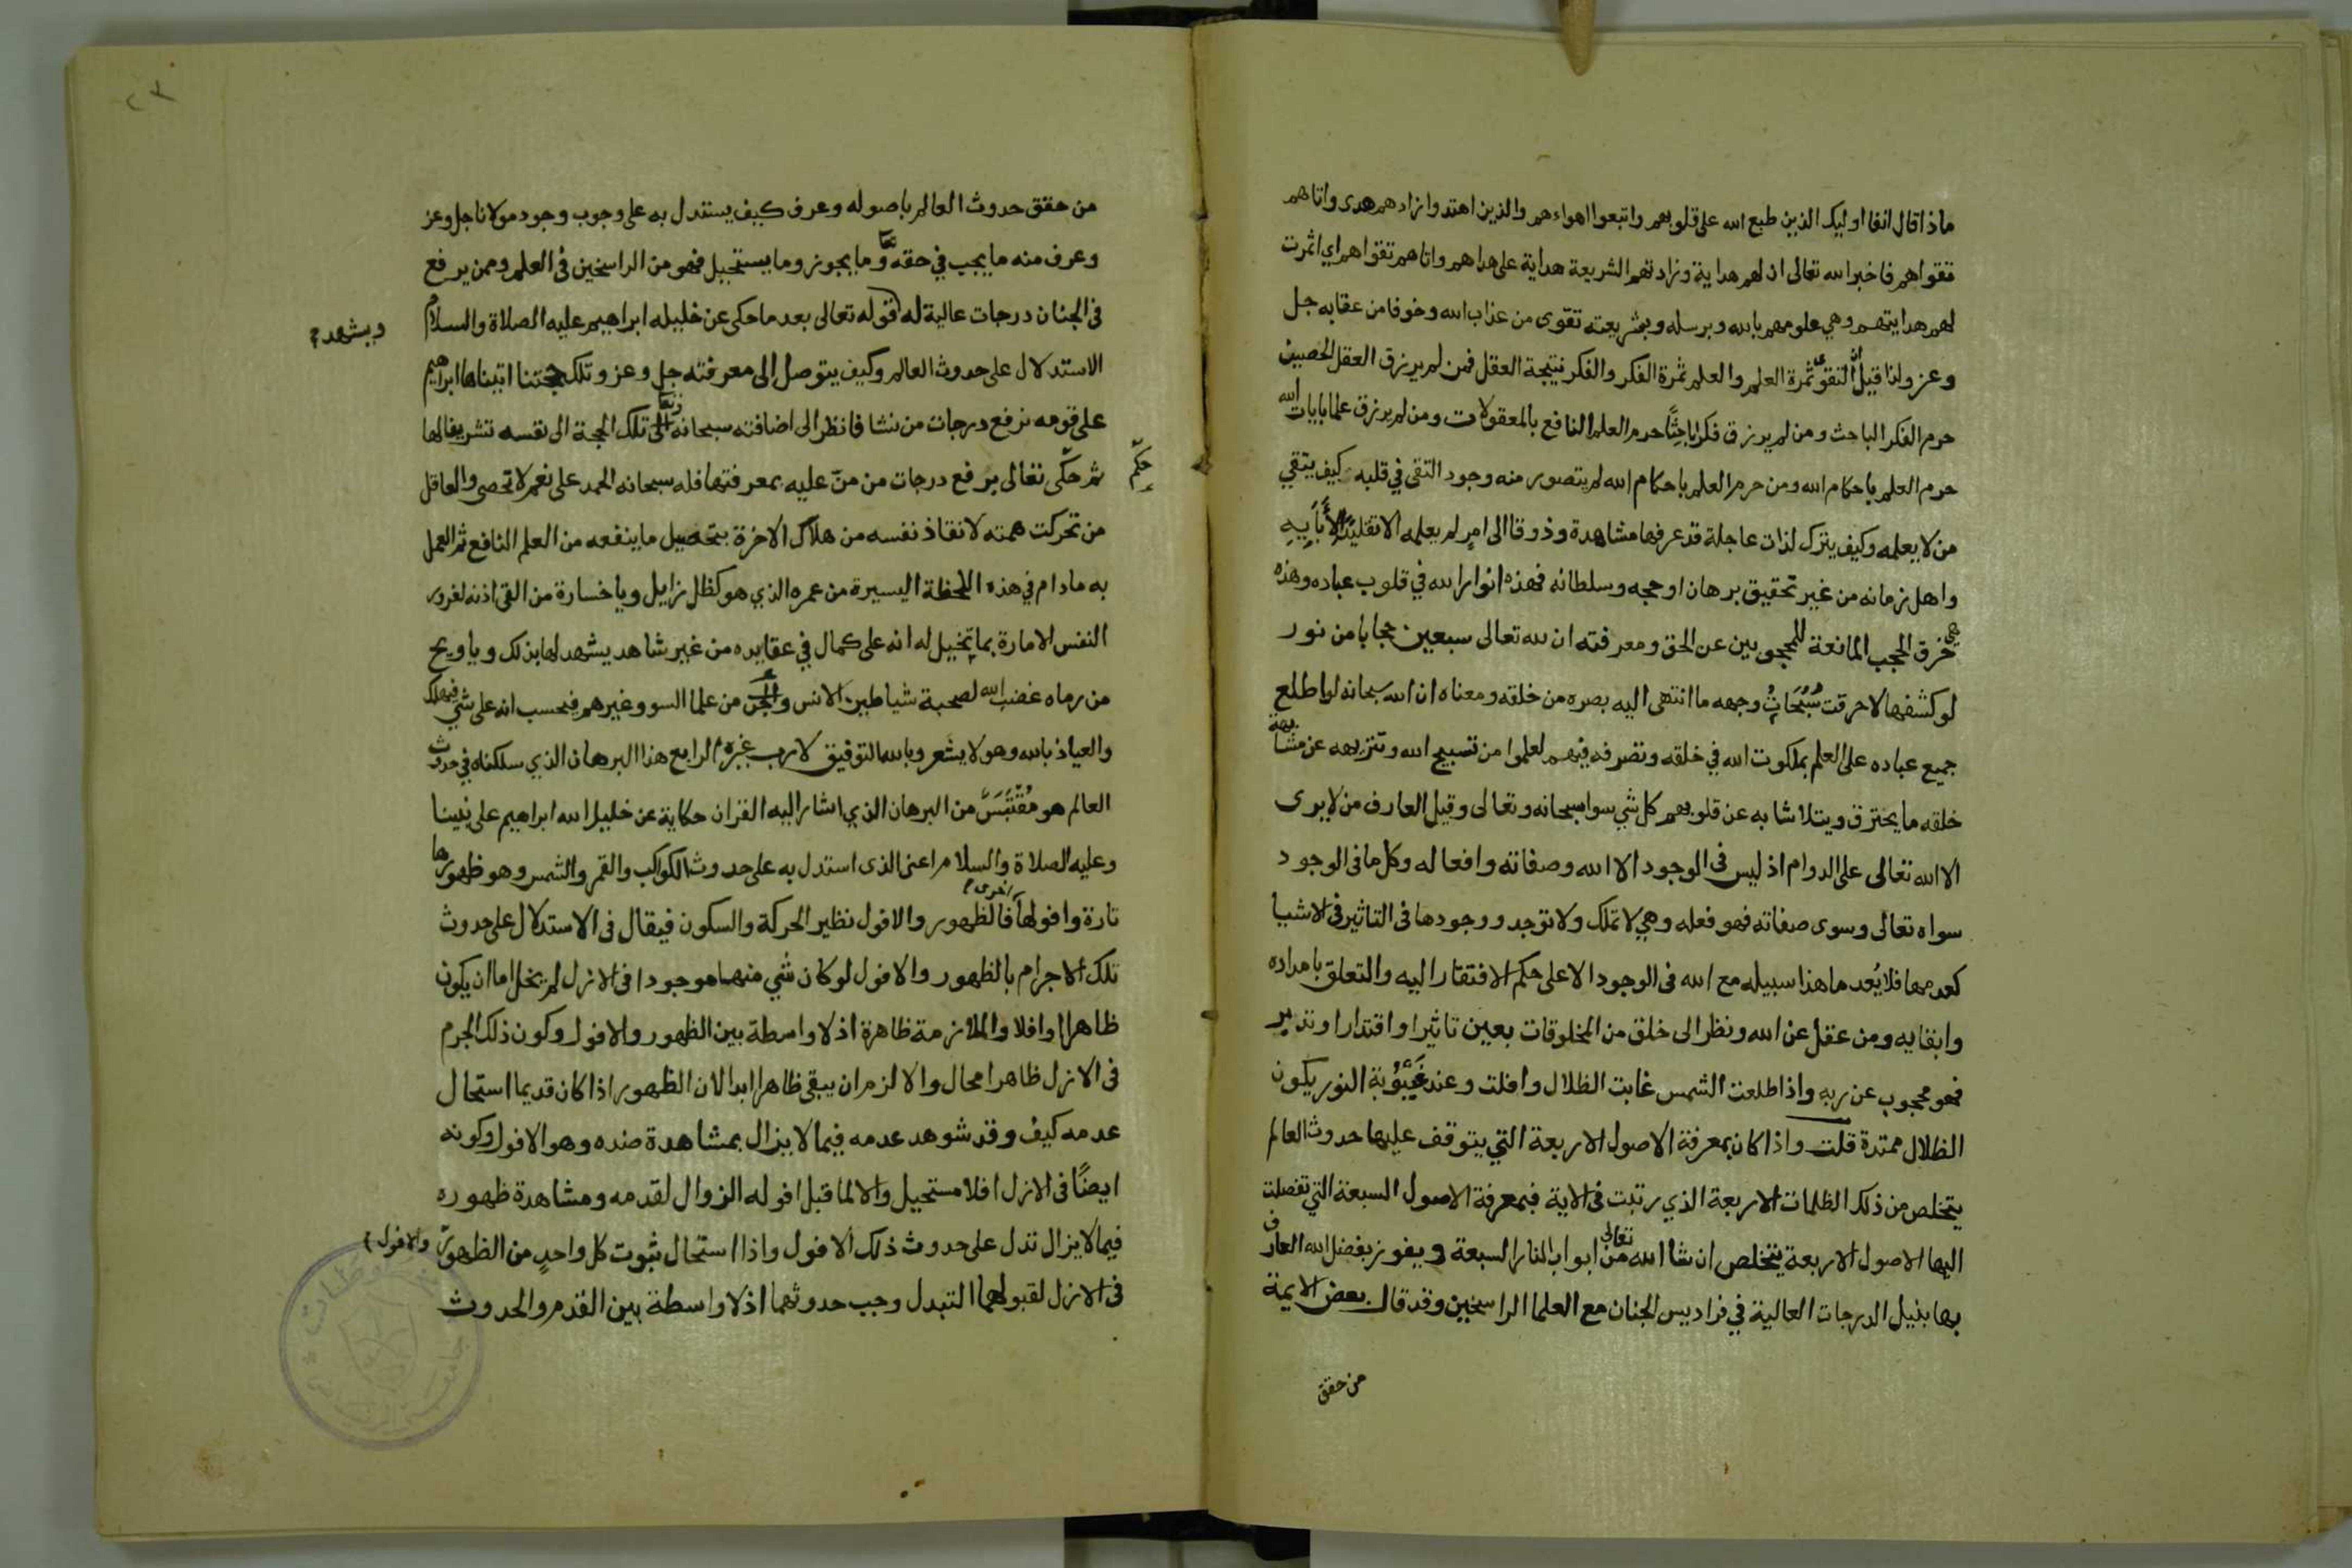 ماذا قال انفا اوليك الذين طبع الله على قلوبهم واتبعوا اهواءهم والذين اهتدوا زادهم هدى واتاهم
تقواهم فاخبر الله تعالى ان لهم هداية وزادتهم الشريعة هداية على هداهم واتاهم تقواهم اي اثمرت
لهم هدايتهم وهي علومهم بالله وبرسله وبشريعته تقوى من عذاب الله وخوفا من عقابه جل
وعز ولذا قيل التقوى ثمرة العلم والعلم ثمرة الفكر والفكر نتيجة العقل فمن لم يرزق العقل الخصيف
حرم الفكر الباحث ومن لم يرزق فكرا باحثا حرم العلم النافع بالمعقولات ومن لم يرزق علما بايات الله
حرم العلم باحكام الله ومن حرم العلم باحكام الله لم يتصور منه وجود التقى في قلبه كيف يتقي
من لا يعلمه وكيف يترك لذات عاجلة قد عرفها مشاهدة وذوقا الى امر لم يعلمه الا تقليدا لأبايه
واهل زمانه من غير تحقيق برهان او حجه وسلطانه فهذه انوار الله في قلوب عباده وهذه
هي خرق الحجب المانعة للمحجوبين عن الحق ومعرفته ان لله تعالى سبعين حجابا من نور
لو كشفها لاحرقت سُبُحَاتُ وجهه ما انتهى اليه بصره من خلقه ومعناه ان الله سبحانه لو اطلع
جميع عباده على العلم بملكوت الله في خلقه وتصرفه فيهم لعلموا من تسبيح الله وتنزيهه عن مشابهة
خلقه ما يحترق ويتلاشا به عن قلوبهم كل شي سوا سبحانه وتعالى وقيل العارف من لا يرى
الا الله تعالى على الدوام اذ ليس في الوجود الا الله وصفاته وافعاله وكل ما في الوجود
سواه تعالى وسوى صفاته فهو فعله وهي لا تملك ولا توجد ووجودها في التاثير في الاشيا
كعدمها فلا يُعد ما هذا سبيله مع الله في الوجود الا على حكم الافتقار اليه والتعلق بامداده
وابقايه ومن عقل عن الله ونظر الى خلق من المخلوقات بعين تاثيرا واقتدارا وتدبير
فهو محجوب عن ربه واذا طلعت الشمس غابت الظلال وافلت وعند غَيْبُوْبة النور يكون
الظلال ممتدة قلت واذا كان بمعرفة الاصول الاربعة التي يتوقف عليها حدوث العالم
يتخلص من ذلك الظلمات الاربعة الذي رتبت في الاية فبمعرفة الاصول السبعة التي تفصلت
اليها الاصول الاربعة يتخلص ان شا الله تعالى من ابواب النار السبعة ويفوز بفضل الله العارف
بها بنيل الدرجات العالية في فراديس الجنان مع العلما الراسخين وقد قال بعض الايمة
من حقق
٢٣
من حقق حدوث العالم باصوله وعرف كيف يستدل به على وجوب وجود مولانا جل وعز
وعرف منه ما يجب في حقه تعا وما يجوز وما يستحيل فهو من الراسخين في العلم وممن يرفع
في الجنان درجات عالية له قوله تعالى بعد ما حكى عن خليله ابراهيم عليه الصلاة والسلام
ويشهد
الاستدلال على حدوث العالم وكيف يتوصل الى معرفته جل وعز وتلك حجتنا اتيناها ابراهيم
على قومه نرفع درجات من نشا فانظر الى اضافته سبحانه وتعا تلك الحجة الى نفسه تشريفا لها
ثم حكّى تعالى برفع درجات من منّ عليه بمعرفتها فله سبحانه الحمد على نعم لا تحصى والعاقل
حكّم
من تحركت همته لانقاذ نفسه من هلاك الاخرة بتحصيل ما ينفعه من العلم النافع ثم العمل
به مادام في هذه اللحظة اليسيرة من عمره الذي هو كظل زايل ويا خسارة من القى اذنه لغرور
النفس الامارة بما يتخيل له انه على كمال في عقايده من غير شاهد يشهد لها بذلك ويا ويح
من رماه غضب الله لصحبة شياطين الانس والجن من علما السو وغيرهم فيحسب انه على شي فيهلك
والعياذ بالله وهو لا يشعر وبالله التوفيق لا رب غيره الرابع هذا البرهان الذي سلكناه في حدوث
العالم هو مُقْتَبَسٌ من البرهان الذي اشار اليه القران حكاية عن خليل الله ابراهيم على نبينا
وعليه الصلاة والسلام اعني الذي استدل به على حدوث الكواكب والقمر والشمس وهو ظهورها
تارة وافولها اخرى فالظهور والافول نظير الحركة والسكون فيقال في الاستدلال على حدوث
تلك الاجرام بالظهور والافول لو كان شي منها موجودا في الازل لم يخل اما ان يكون
ظاهرا او افلا والملازمة ظاهرة اذ لا واسطة بين الظهور والافول وكون ذلك الجرم
في الازل ظاهرا محال والا لزم ان يبقى ظاهرا ابدا لان الظهور اذا كان قديما استحال
عدمه كيف وقد شوهد عدمه فيما لا يزال بمشاهدة ضده وهو الافول وكونه
ايضًا في الازل افلا مستحيل والا لما قبل افوله الزوال لقدمه ومشاهدة ظهوره
فيما لا يزال تدل على حدوث ذلك الافول واذا استحال ثبوت كل واحدٍ من الظهور والافول
في الازل لقبولهما التبدل وجب حدوثهما اذ لا واسطة بين القدم والحدوث